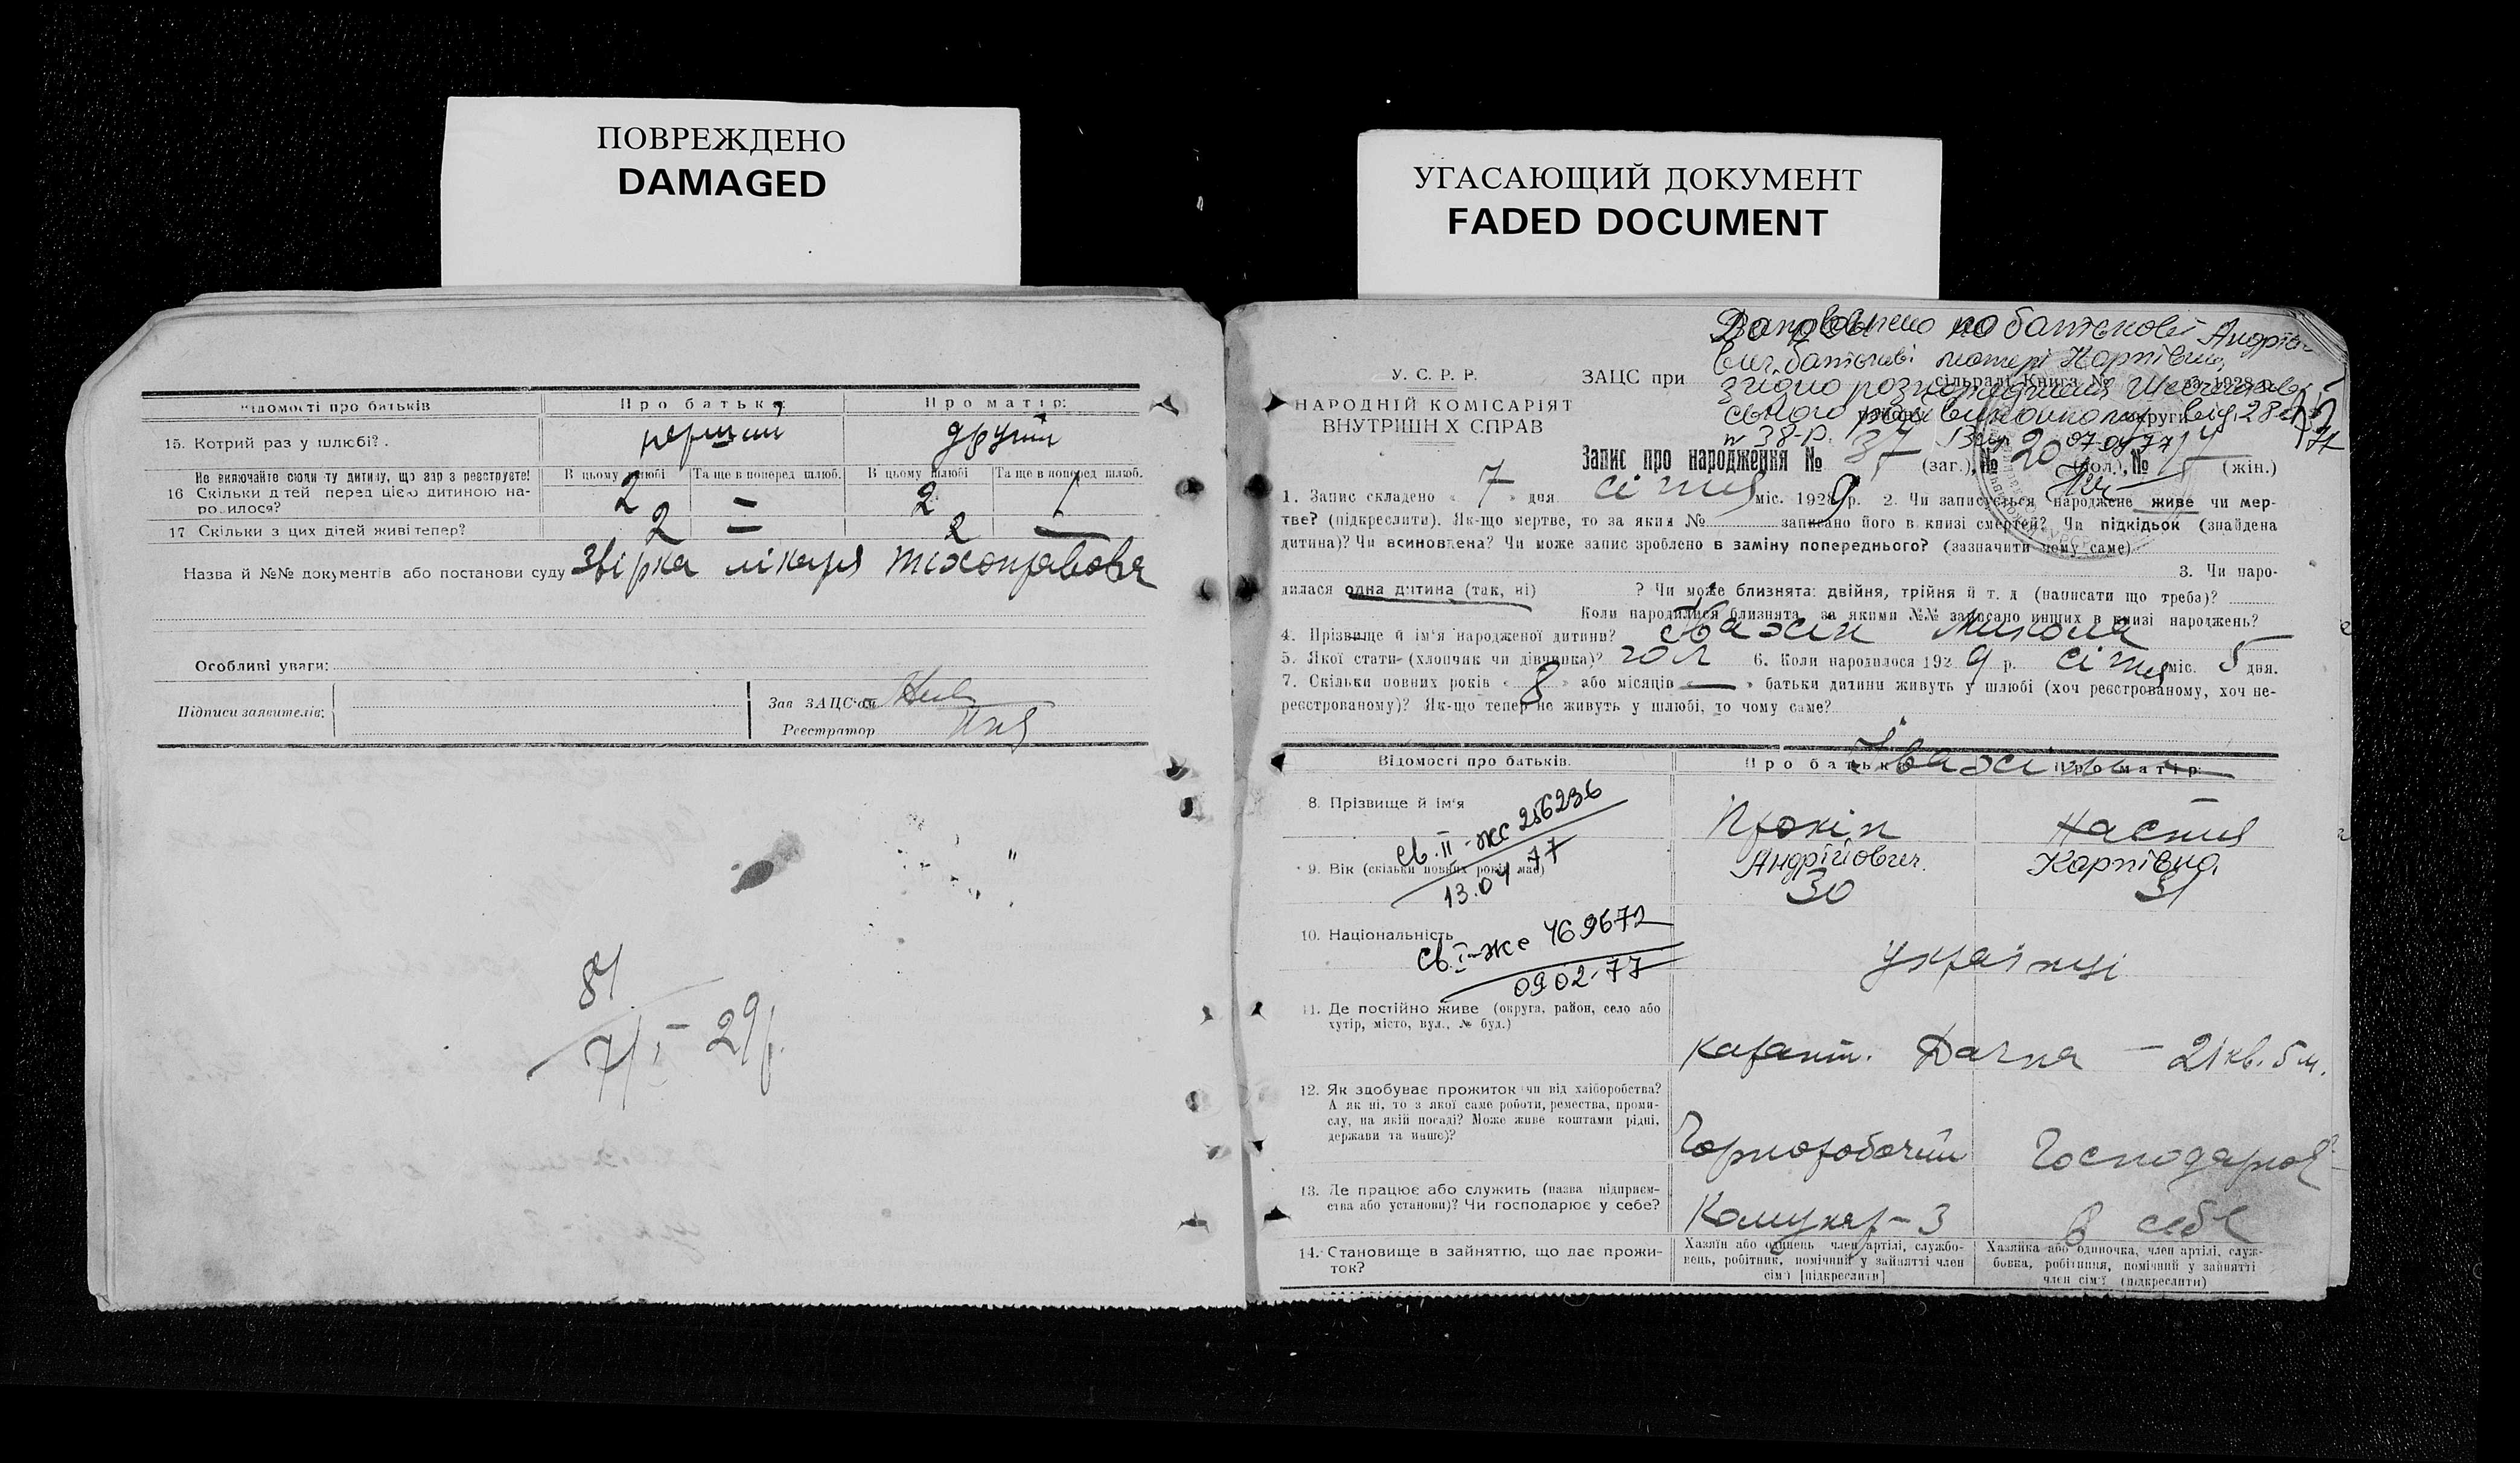 ПОВРЕЖДЕНО
DAMAGED
УГАСАЮЩИЙ ДОКУМЕНТ
FADED DOCUMENT
Відомості про батьків
Про батька:
Про матір:
15. Котрий раз у шлюбі?.
перший
другий
Не включайте сюди ту дитину, що зар з реєструєте!
В цьому шлюбі
Та ще в поперед шлюб.
В цьому шлюбі
Та ще в поперед шлюб.
16 Скільки дітей перед цією дитиною на-
родилося?
2
=
2
1
17 Скільки з цих дітей живі тепер?
2
2
—
Назва й №№ документів або постанови суду Звірка лікаря
Особливі уваги:
Підписи заявителів:
Зав ЗАЦС'ом
Реєстратор
81
7/I - 29р.
по батькові Андрійо-
вич, батькові матері Карпівна,
згідно розпорядження
№ 38-р.
У. С. Р. Р.
НАРОДНІЙ КОМІСАРІЯТ
ВНУТРІШНІХ СПРАВ
ЗАЦС при
сільраді Книга № за 1928 р.
району
округи
Запис про народження № 37 (заг.), № 20 (чол.), № (жін.)
1. Запис складено « 7 » дня січня міс. 1929 р. 2. Чи записується народжене живе чи мер-
тве? (підкреслити). Як-що мертве, то за яким № записано його в книзі смертей? Чи підкідьок (знайдена
дитина)? Чи всиновлена? Чи може запис зроблено в заміну попереднього? (зазначити чому саме)
3. Чи наро-
дилася одна дитина (так, ні) ? Чи може близнята: двійня, трійня й т. д (написати що треба)?
Коли народилися близнята, за якими №№ записано инших в книзі народжень?
4. Прізвище й ім'я народженої дитини? Івахін Микола
5. Якої стати (хлопчик чи дівчинка)? чол 6. Коли народилося 1929 р. січня міс. 5 дня.
7. Скільки повних років « 8 » або місяців « — » батьки дитини живуть у шлюбі (хоч реєстрованому, хоч не-
реєстрованому)? Як-що тепер не живуть у шлюбі, то чому саме?
Відомості про батьків.
Про батька:
Про матір:
8. Прізвище й ім'я
Прокіп
Настя
Андрійович.
Карпівна.
св. II-ЖС 256236
13.04 77
9. Вік (скільки повних років має)
30
31
10. Національність
українці
св. I-ЖС 469672
09.02.77
11. Де постійно живе (округа, район, село або
хутір, місто, вул., № буд.)
карант. Дачна — 21 кв. 5 м.
12. Як здобуває прожиток чи від хліборобства?
А як ні, то з якої саме роботи, ремества, проми-
слу, на якій посаді? Може живе коштами рідні,
держави та инше)?
Чорноробочий
Господарює
13. Де працює або служить (назва підприєм-
ства або установи)? Чи господарює у себе?
Комунар-3
в себе
14. Становище в зайняттю, що дає прожи-
ток?
Хазяїн або одинець член артілі, службо-
вець, робітник, помічний у зайнятті член
сім'ї [підкреслити]
Хазяйка або одиночка, член артілі, служ-
бовка, робітниця, помічний у зайнятті
член сім'ї (підкреслити)